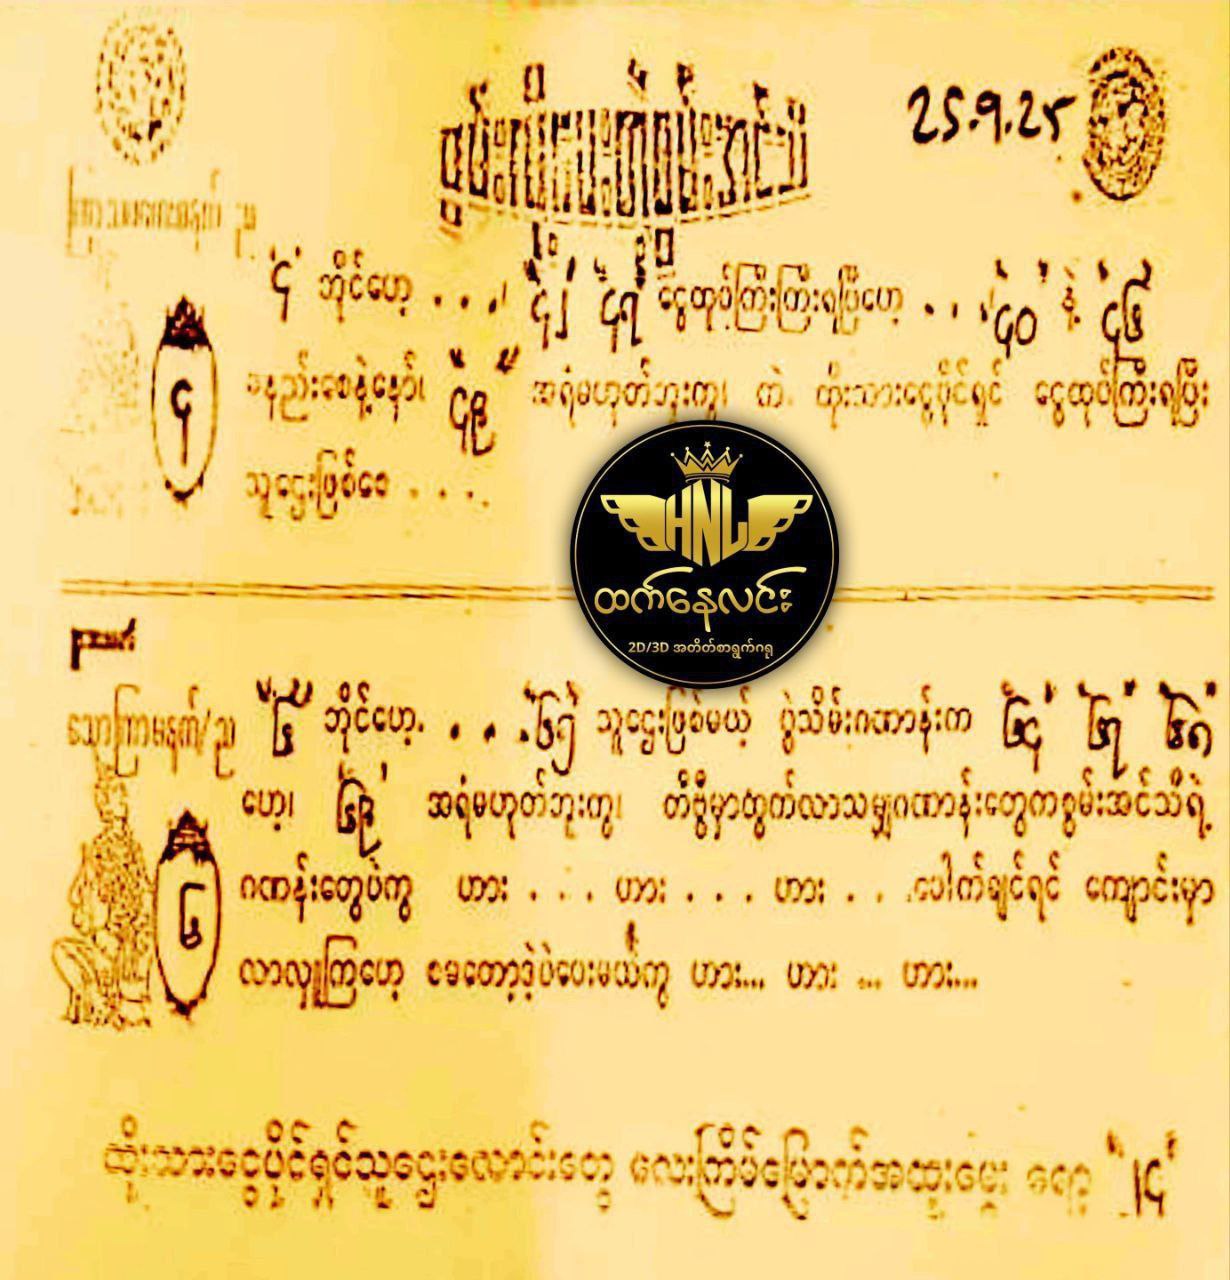 25.9.25
"၄" ဘိုင်ဟေ့ . . . "၄၂" "၄၇" ငွေထုပ်ကြီးကြီးရပြီဟေ့ . . . "၄၀" နဲ့ "၄၆"
မနည်းစေနဲ့နော်၊ "၄၉" အရံမဟုတ်ဘူးကွ၊ ကဲ ထိုးသားငွေပိုင်ရှင် ငွေထုပ်ကြီးရပြီး
၄
သူဌေးဖြစ်စေ . . . .
HNL
ထက်နေလင်း
2D/3D အတိတ်စာရွက်ဂရု
သောကြာမနက်/ည "၆" ဘိုင်ဟေ့. . . . "၆၅" သူဌေးဖြစ်မယ့် ပွဲသိမ်းဂဏန်းက "၆၄" "၆၇" "၆၈"
ဟေ့၊ "၆၉" အရံမဟုတ်ဘူးကွ၊ တီဗွီမှာထွက်လာသမျှဂဏာန်းတွေကစွမ်းအင်သိရဲ့
၆
ဂဏန်းတွေပဲကွ ဟား . . . ဟား . . . ဟား . . . ပေါက်ချင်ရင် ကျောင်းမှာ
လာလှူကြဟေ့ ခေတော့ဒဲ့ပဲပေးမယ်ကွ ဟား... ဟား ... ဟား...
ထိုးသားငွေပိုင်ရှင်သူဌေးလောင်းတွေ လေးကြိမ်မြောက်အထူးမွေး ရော့ "၂၄"